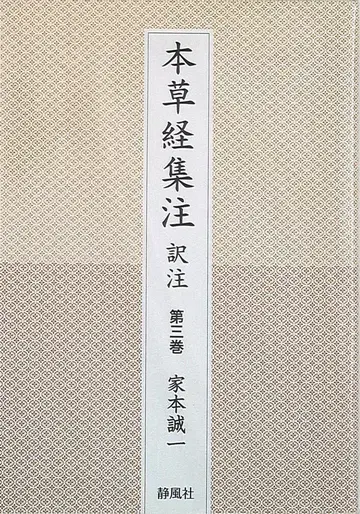 本草経集注 訳注 第三巻 家本誠一
静風社